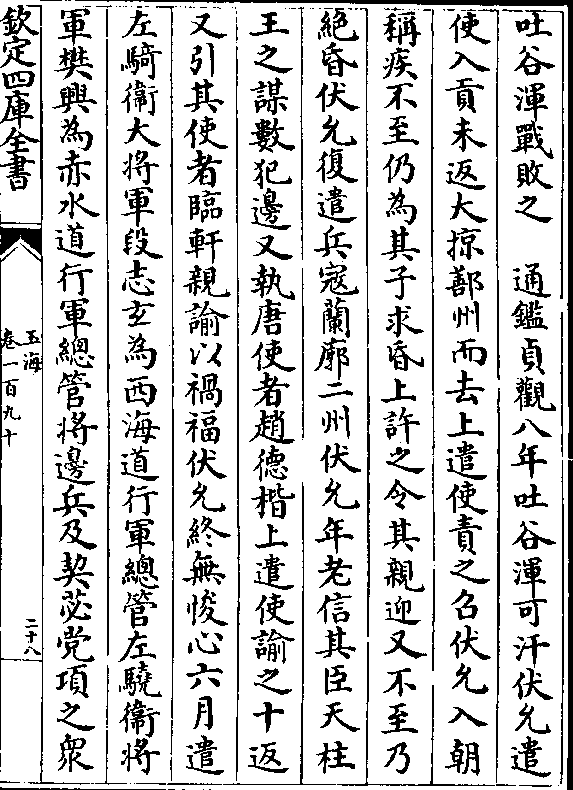 吐谷渾戰敗之　通鑑貞觀八年吐谷渾可汗伏允遣
使入貢未返大掠鄯州而去上遣使責之召伏允入朝
稱疾不至仍為其子求昏上許之令其親迎又不至乃
絶昏伏允復遣兵寇蘭廓二州伏允年老信其臣天柱
王之謀數犯邊又執唐使者趙德楷上遣使諭之十返
又引其使者臨軒親諭以禍福伏允終無悛心六月遣
左驍衛大將軍段志玄為西海道行軍總管左驍衛將
軍樊興為赤水道行軍總管將邊兵及契苾党項之衆
欽定四庫全書
玉海
卷一百九十
二十八